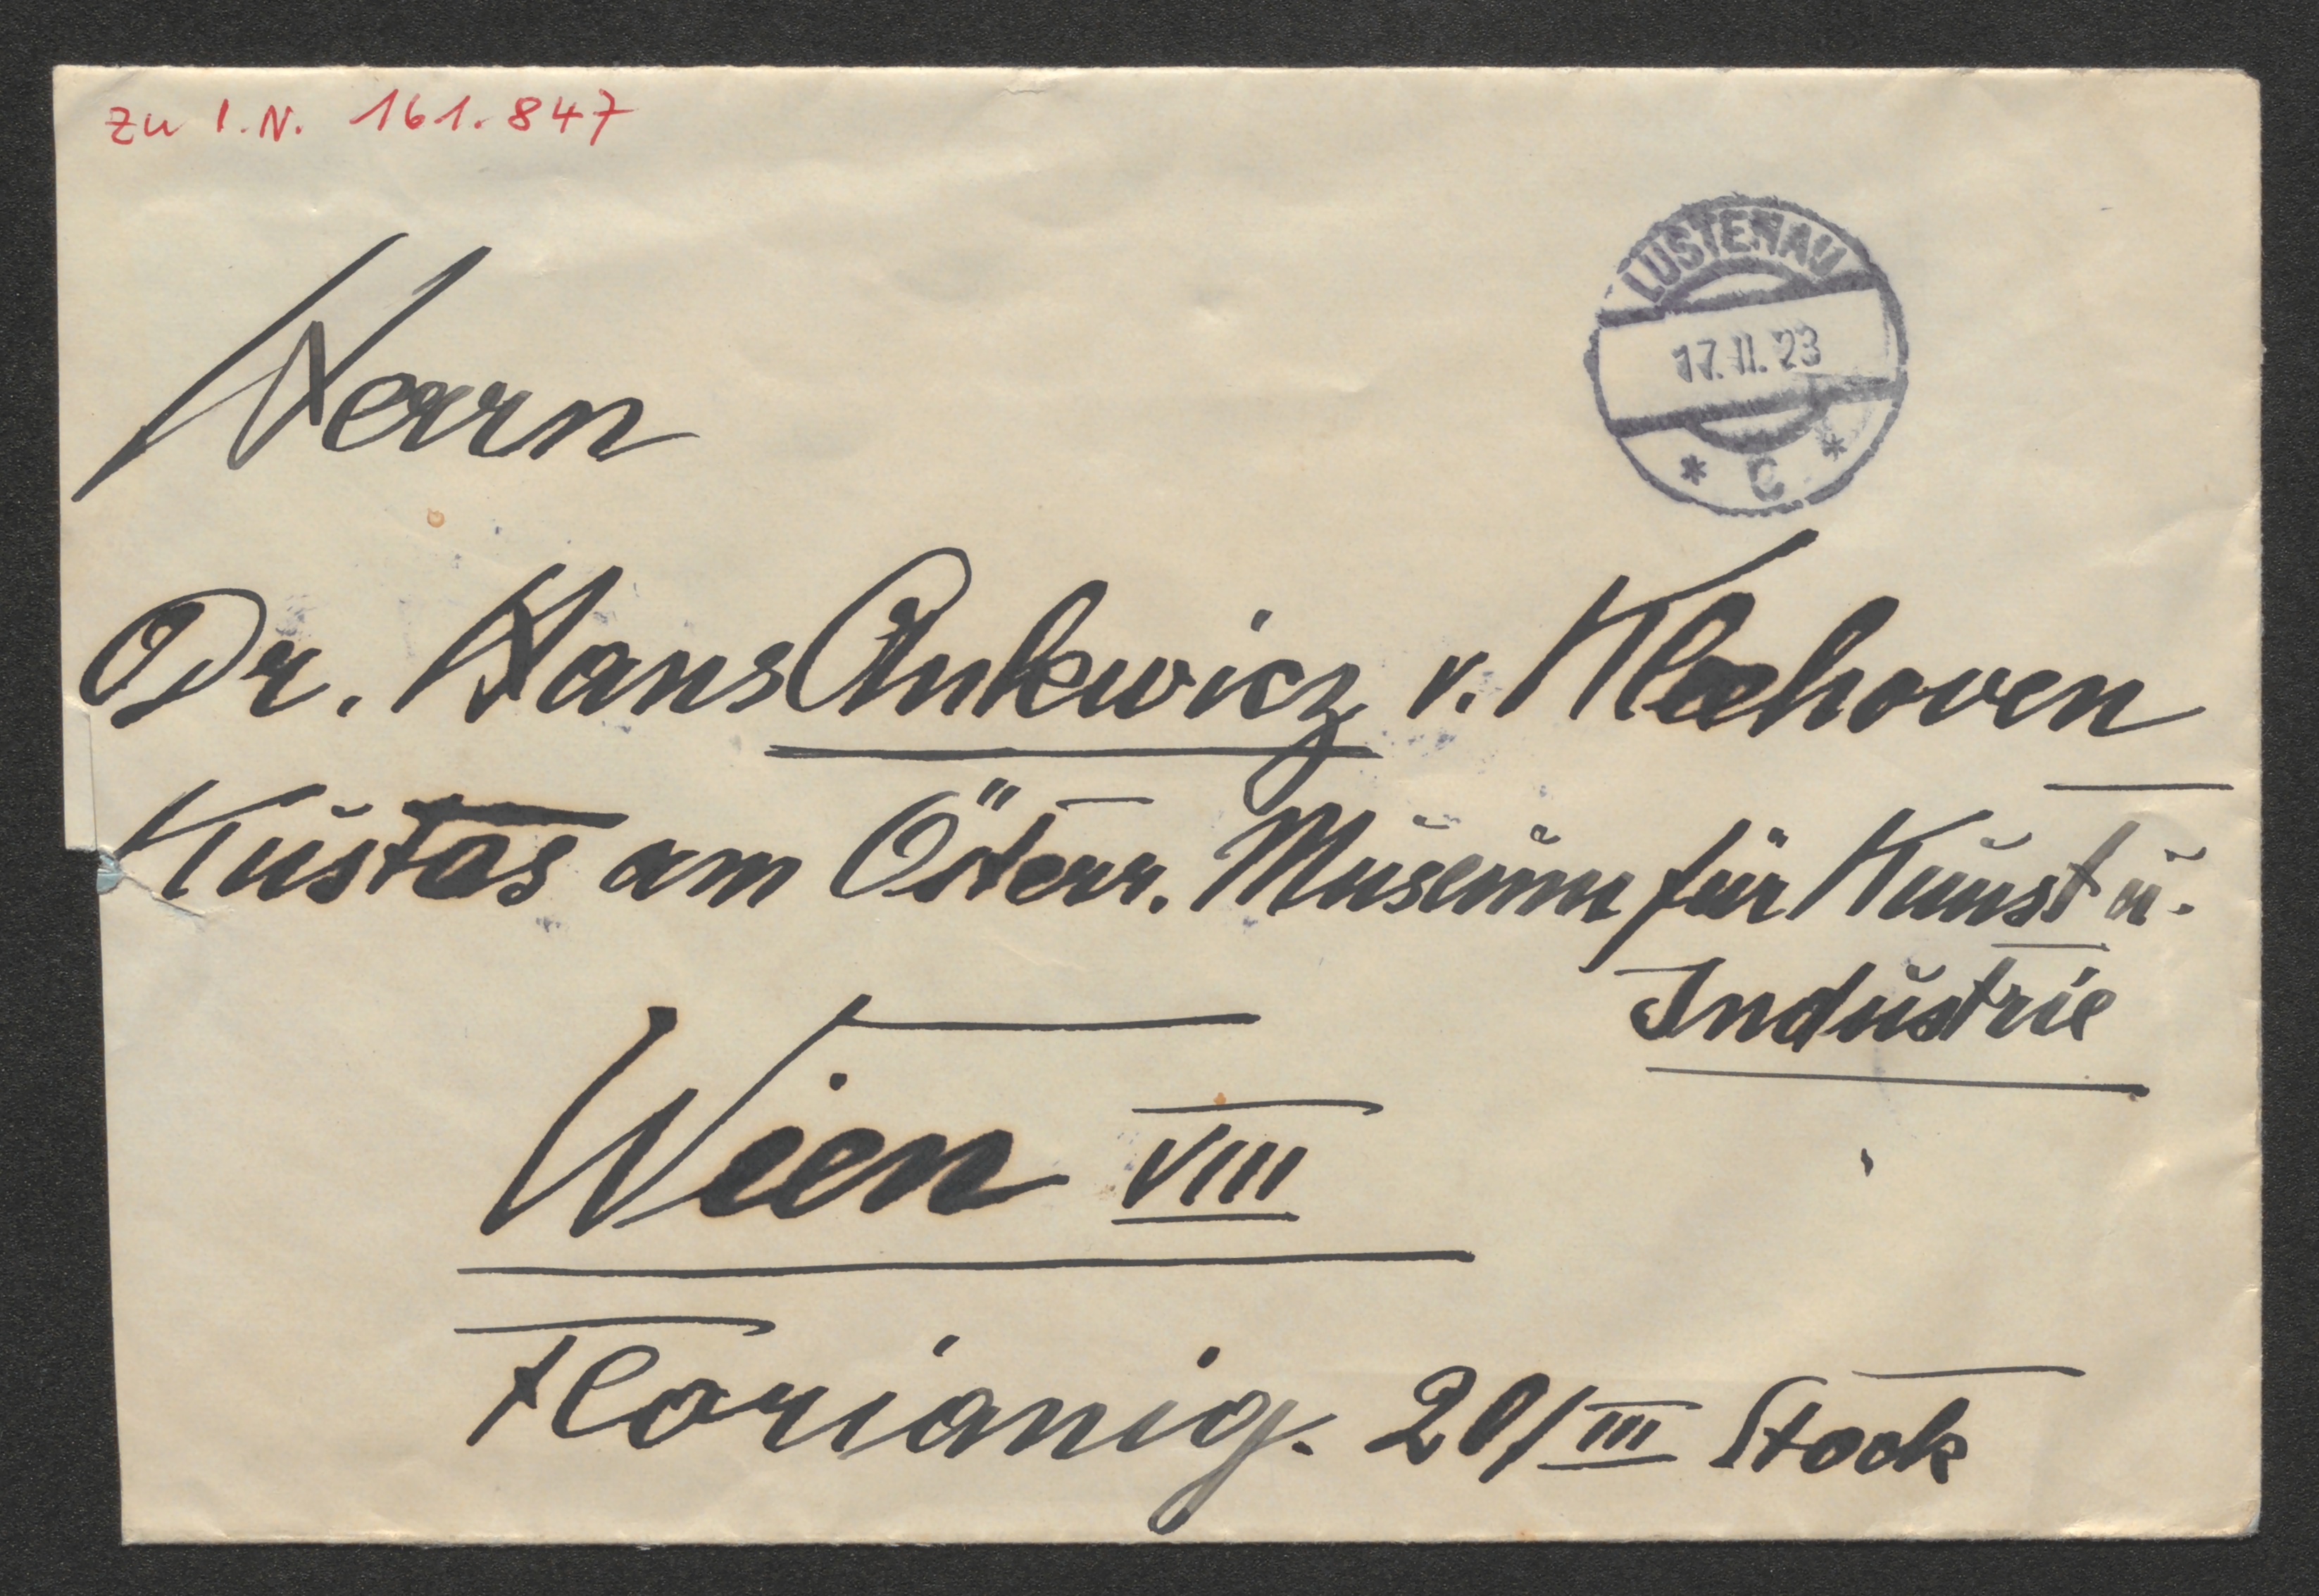 zu I.N. 161.847
LUSTENAU
17.II.23
* C *
Herrn
Dr. Hans Ankwicz v. Kleehoven
Kustos am Österr. Museum für Kunst u.
Industrie
Wien VIII
Florianig. 20/III Stock